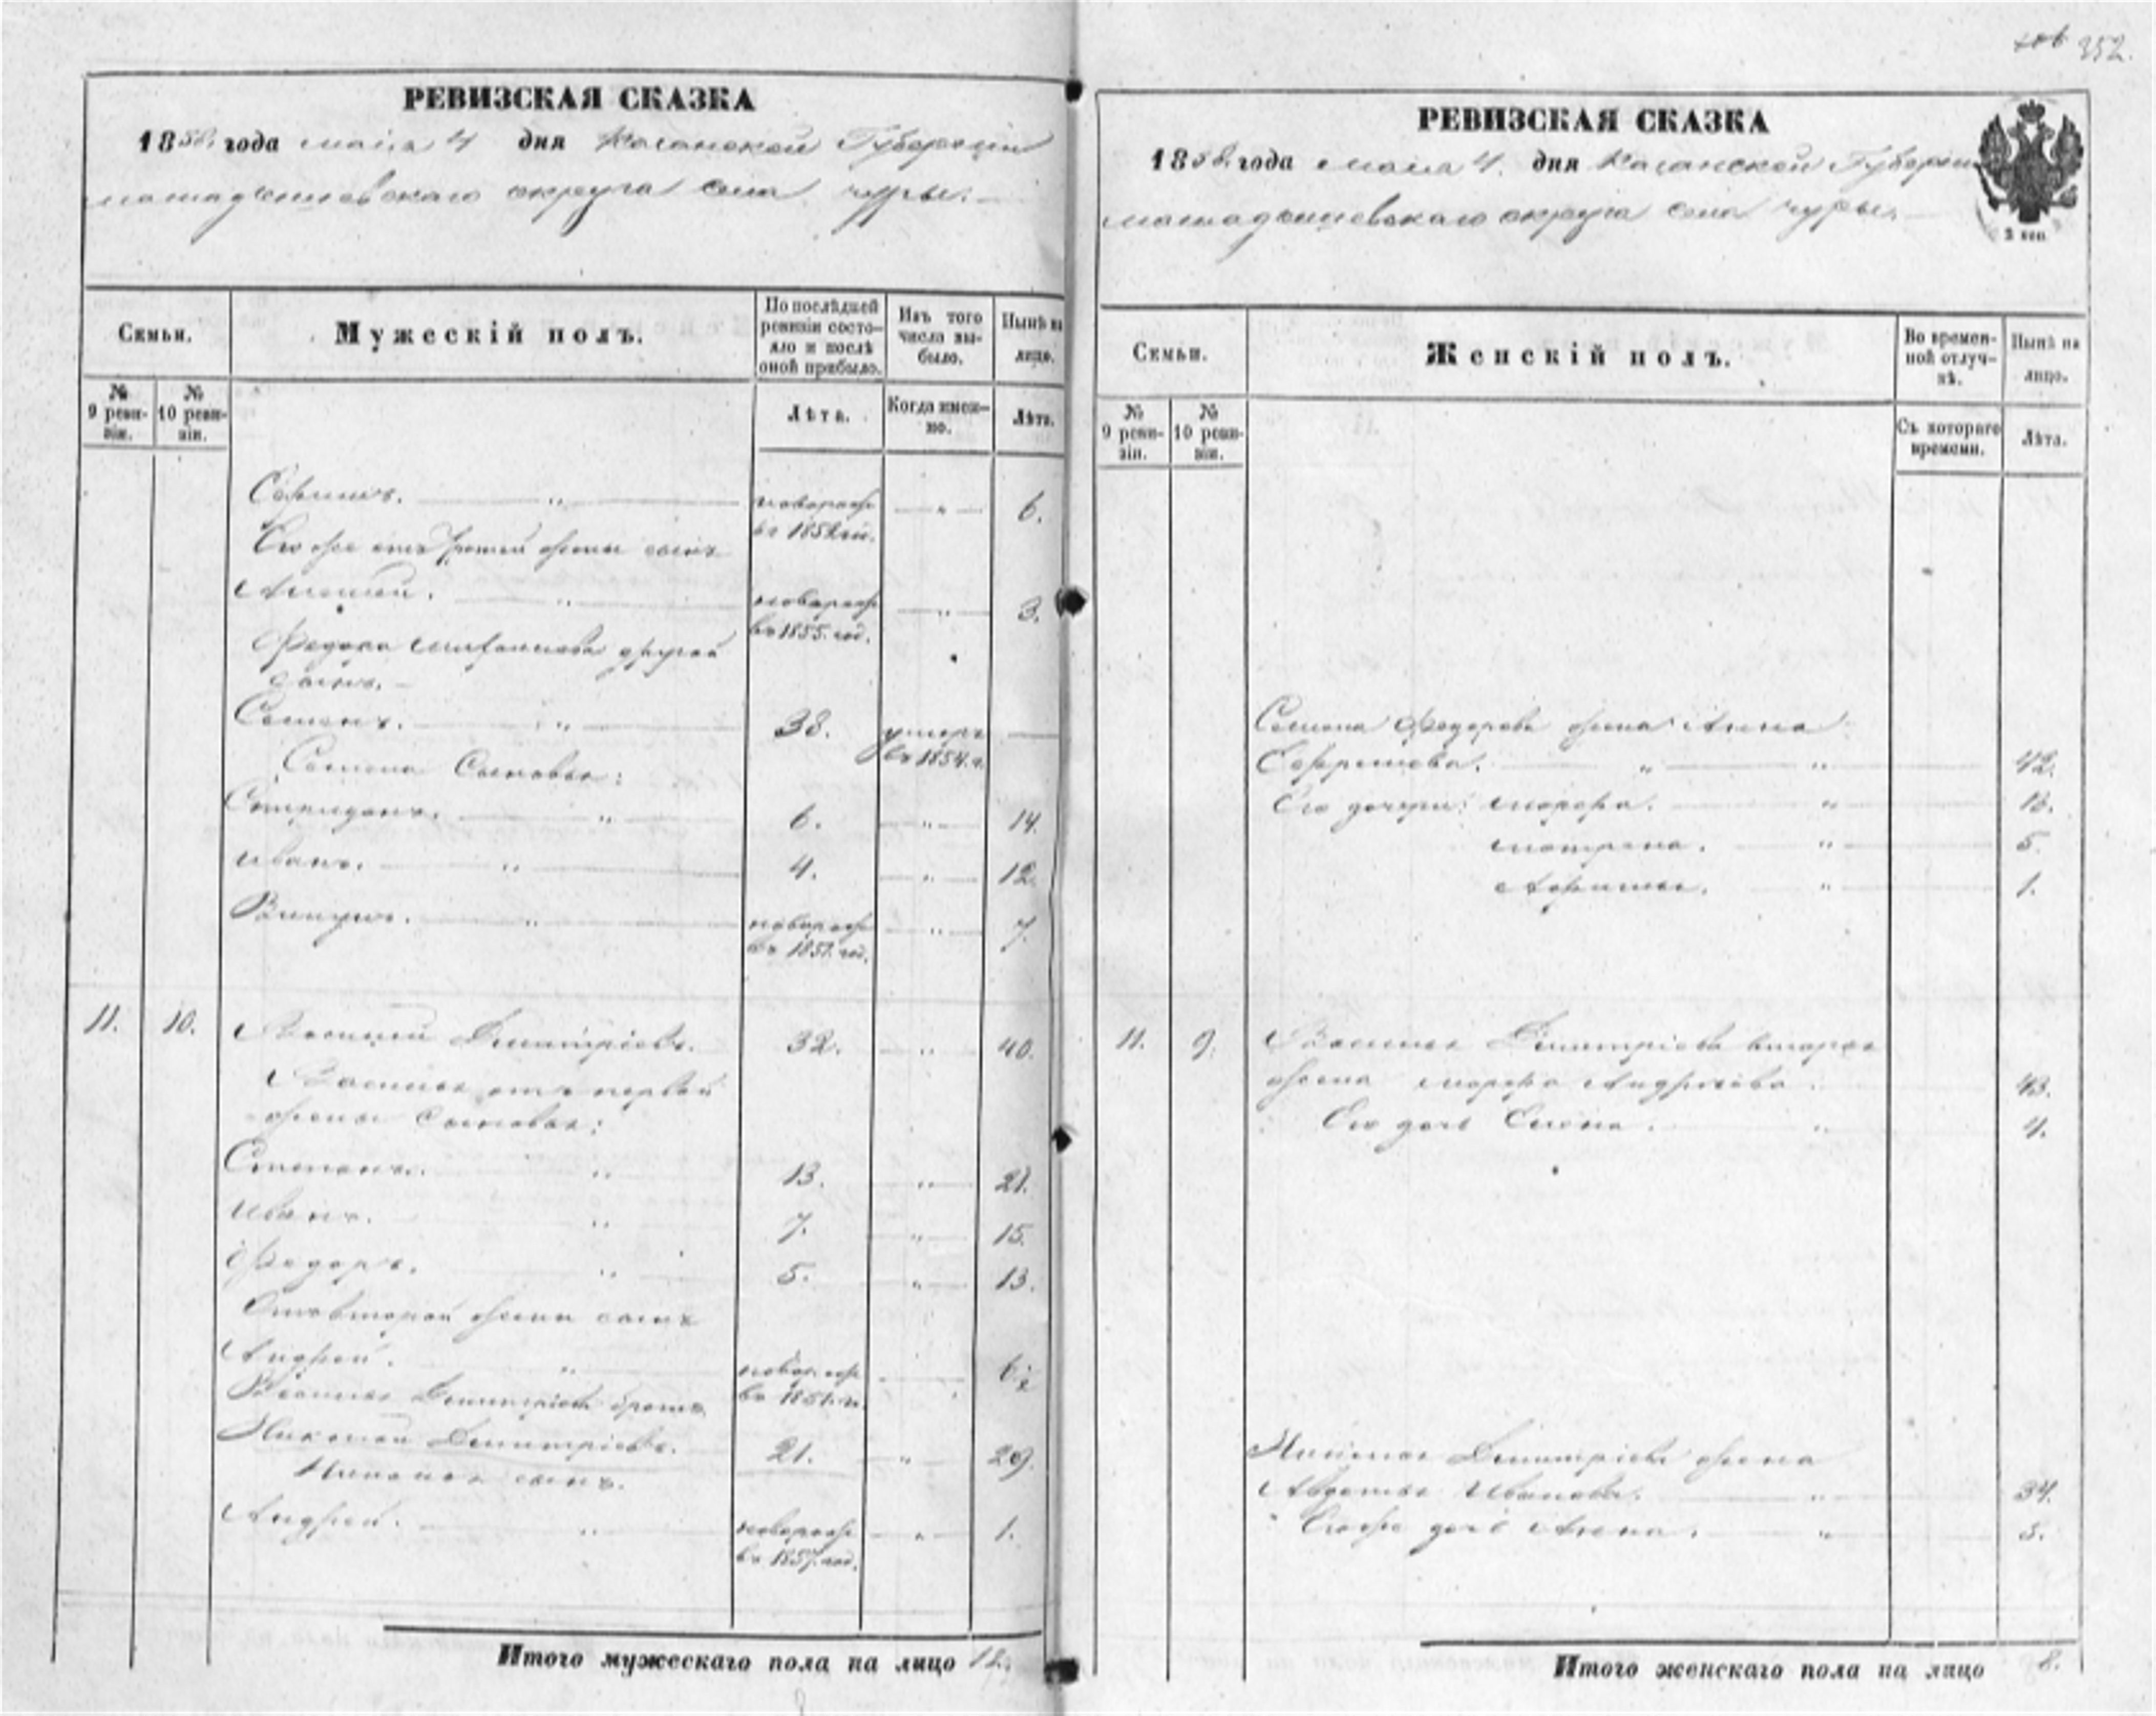 352.
РЕВИЗСКАЯ СКАЗКА
1858. года маія 4 дня Казанской Губерніи
мамадышевскаго округа села чуры.
Семьи.
Мужескій полъ.
По послѣдней ревизіи состояло и послѣ оной прибыло.
Изъ того числа выбыло.
Нынѣ на лицо.
№ 9 ревизіи.
№ 10 ревизіи.
Лѣта.
Когда именно.
Лѣта.
новорож " 6.
Его же отъ третей жены сынъ въ 1852
новорож " 3.
въ 1855. год.
Федора другой
сынъ.
Семенъ. " 38. умеръ
въ 1854. г.
Семена Сыновья:
Спиридонъ. " 6. " 14.
Иванъ. " 4. " 12.
" новорож " 7.
въ 1851. год.
11. 10. Василий Дмитріевъ. 32. " 40.
Василья отъ первой
жены Сыновья:
Степанъ. " 13. " 21.
Иванъ. " 7. " 15.
Федоръ. " 5. " 13.
Отъ второй жены сынъ
Андрей. " новорож 6
Василья Дмитріева братъ въ 1851. г.
Николай Дмитріевъ. 21. " 29.
Николая сынъ.
Андрей. " новорож " 1.
въ 1857. год.
Итого мужескаго пола на лицо 12.
РЕВИЗСКАЯ СКАЗКА
1858. года маія 4. дня Казанской Губерніи
мамадышевскаго округа села чуры.
2 коп
Семьи.
Женскій полъ.
Во временной отлучкѣ.
Нынѣ на лицо.
№ 9 ревизіи.
№ 10 ревизіи.
Съ котораго времени.
Лѣта.
Семена Федорова жена Анна
Ефремова. " " 42.
Его дочери: марфа. " 13.
матрена. " 5.
" 1.
11. 9. Василья Дмитріева вторая
жена марфа Андреева. 43.
Его дочь Елена. " 4.
Николая Дмитріева жена
Авдотья Иванова. " 34.
Его же дочь Анна. "
Итого женскаго пола на лицо 8.